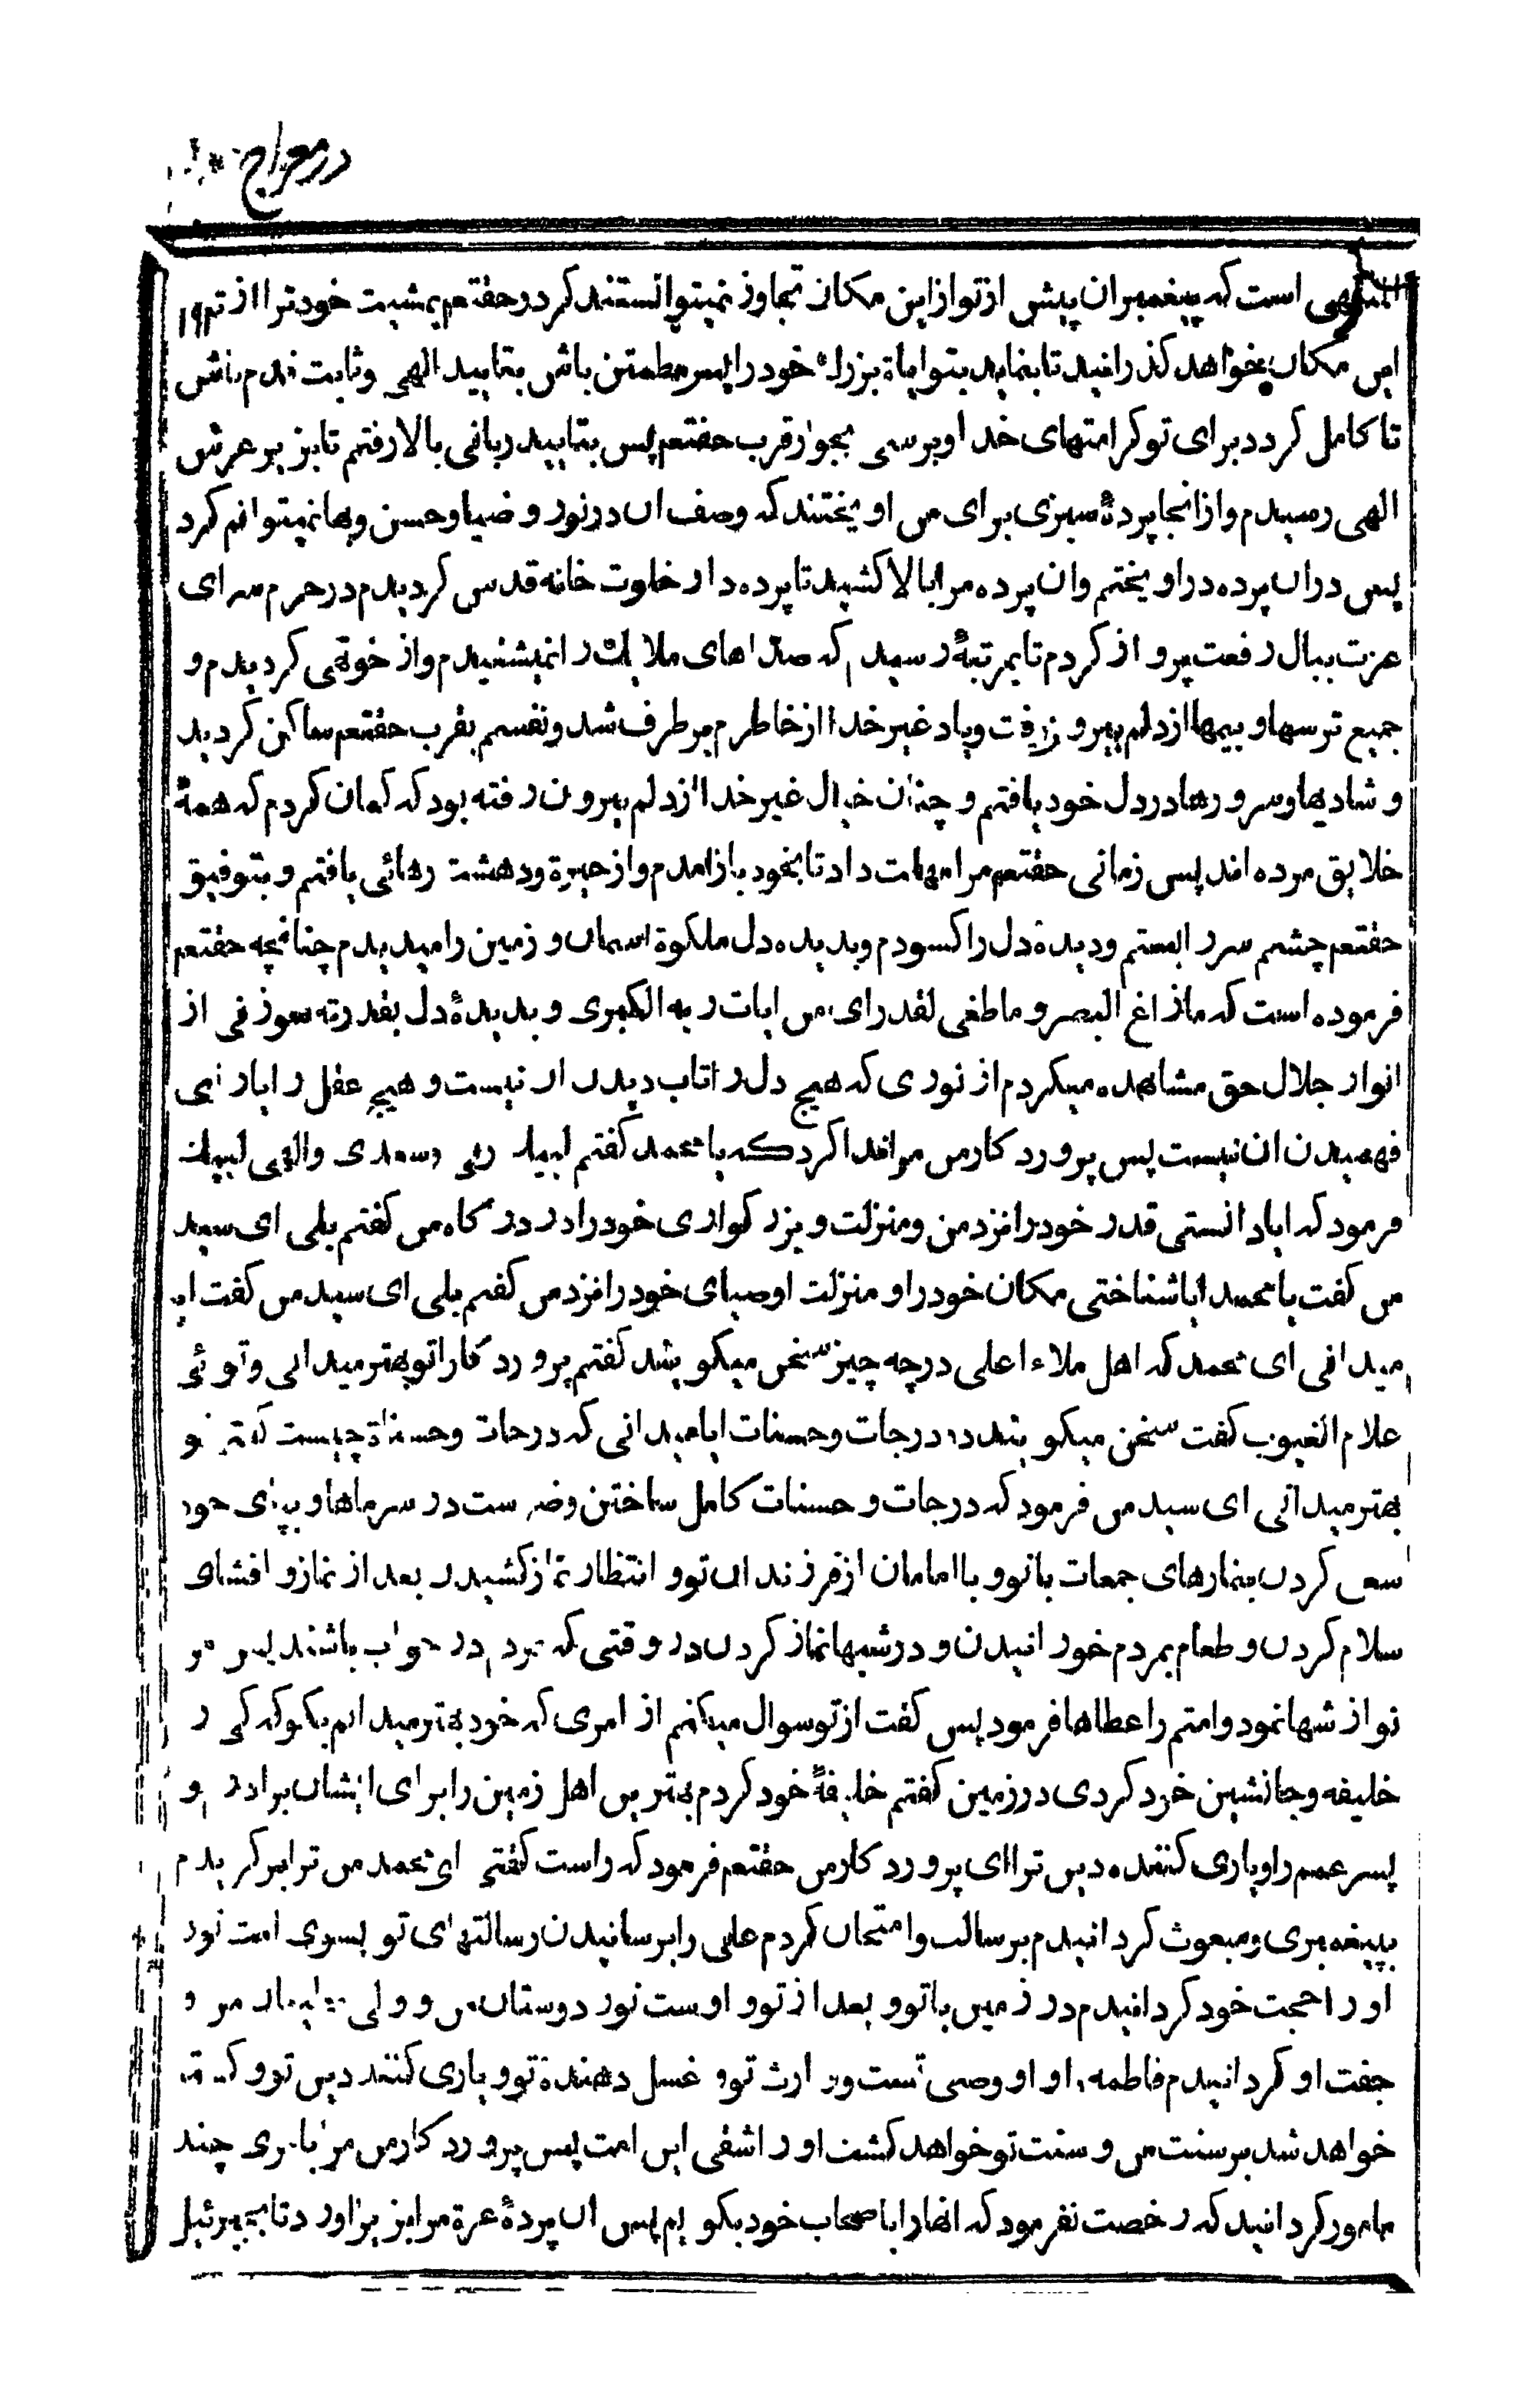 در معراج
المنتهی است که پیغمبران پیش از تو از این مکان تجاوز نمیتوانستند کرد و حقتعم بمشیت خود ترا از
این مکان بخواهد کذرانید تا بنماید بتو ایاة بزرك خود را پس مطمئن باش بتایید الهی و ثابت قدم باش
تا کامل کردد برای تو کرامتهای خدا و برسی بجوار قرب حقتعم پس بتایید ربانی بالا رفتم تا بزیر عرش
الهی رسیدم و از انجا پردهٔ سبزی برای من اویختند که وصف ان در نور و ضیا و حسن و بها نمیتوانم کرد
پس در ان پرده در اویختم و ان پرده مرا بالا کشید تا پرده دار خلوت خانه قدس کردیدم در حرم سرای
عزت ببال رفعت پرواز کردم تا بمرتبهٔ رسیدم که صداهای ملایك را نمیشنیدم و از خود تهی کردیدم و
جمیع ترسها و بیمها از دلم بیرون رفت و یاد غیر خدا از خاطرم برطرف شد و نفسم بقرب حقتعم ساکن کردید
و شادیها و سرورها در دل خود یافتم و چنان خیال غیر خدا از دلم بیرون رفته بود که کمان کردم که همهٔ
خلایق مرده اند پس زمانی حقتعم مرا مهلت داد تا بخود باز امدم و از حیرة و دهشت رهائی یافتم و بتوفیق
حقتعم چشم سر را بستم و دیدهٔ دل را کشودم و بدیده دل ملکوة اسمان و زمین را میدیدم چنانچه حقتعم
فرموده است که مازاغ البصر و ماطغی لقد رای من ایات ربه الکبری و بدیدهٔ دل بقدر ته سوزنی از
انوار جلال حق مشاهده میکردم از نوری که هیچ دل را تاب دیدن ان نیست و هیچ عقل را یارای
فهمیدن ان نیست پس پروردکار من مرا ندا کرد که یا محمد کفتم لبیك ربی و سعدی و الهی لبیك
فرمود که ایا دانستی قدر خود را نزد من و منزلت و بزرکواری خود را در درکاه من کفتم بلی ای سید
من کفت یا محمد ایا شناختی مکان خود را و منزلت اوصیای خود را نزد من کفتم بلی ای سید من کفت ایا
میدانی ای محمد که اهل ملاء اعلی در چه چیز سخن میکویند کفتم پروردکارا تو بهتر میدانی و توئی
علام الغیوب کفت سخن میکویند در درجات و حسنات ایا میدانی که درجات و حسناة چیست کفتم تو
بهتر میدانی ای سید من فرمود که درجات و حسنات کامل ساختن وضوست در سرماها و بپای خود
سعی کردن بنمازهای جمعات با تو و با امامان از فرزندان تو و انتظار نماز کشیدن بعد از نماز و افشای
سلام کردن و طعام بمردم خورانیدن و در شبها نماز کردن در وقتی که مردم در خواب باشند پس مرا
نوازشها نمود و امتم را عطاها فرمود پس کفت از تو سوال میکنم از امری که خود بهتر میدانم بکو که کی را
خلیفه و جانشین خود کردی در زمین کفتم خلیفهٔ خود کردم بهترین اهل زمین را برای ایشان برادر و
پسر عمم را و یاری کننده دین ترا ای پروردکار من حقتعم فرمود که راست کفتی ای محمد من ترا برکزیدم
بپیغمبری و مبعوث کردانیدم برسالت و امتحان کردم علی را برسانیدن رسالتهای تو بسوی امت تو و
او را حجت خود کردانیدم در زمین با تو و بعد از تو و اوست نور دوستان من و ولی من و
جفت او کردانیدم فاطمه را و او وصی تست و وارث تو و غسل دهندهٔ تو و یاری کننده دین تو و کشته
خواهد شد بر سنت من و سنت تو خواهد کشت او را اشقی این امت پس پروردکار من مرا بامری چند
مامور کردانید که رخصت نفرمود که انها را با صحاب خود بکویم پس ان پردهٔ عزة مرا بزیر اورد تا بجبرئیل